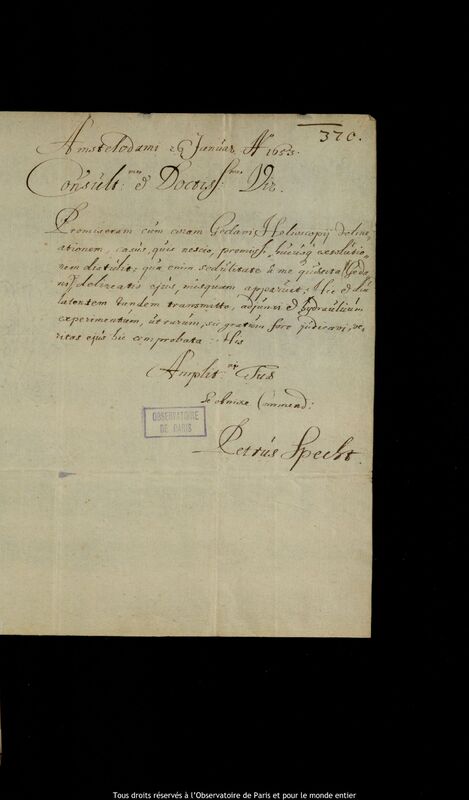 370.
Amstelodami 26 Januar. Aº 1653.
Consult:mo & Doctiss:mo Vir.
Promiseram cum coram Gedani Helioscopij deline
ationem, casus, quis nescio, promissi hucusq exolutio-
nem distulit: qua enim sedulitate a me quæsita Geda
ni delineatio ejus, nusquam apparuit: Hic
latentem tandem transmitto, adjunxi & hydraulicum
experimentum, ut rarum, sic gratum fore judicavi, ve-
ritas ejus hic comprobata. His
Amplit: Tuæ
se obnixe Commend:
OBSERVATOIRE
DE PARIS
Petrus Specht
Tous droits réservés à l'Observatoire de Paris et pour le monde entier